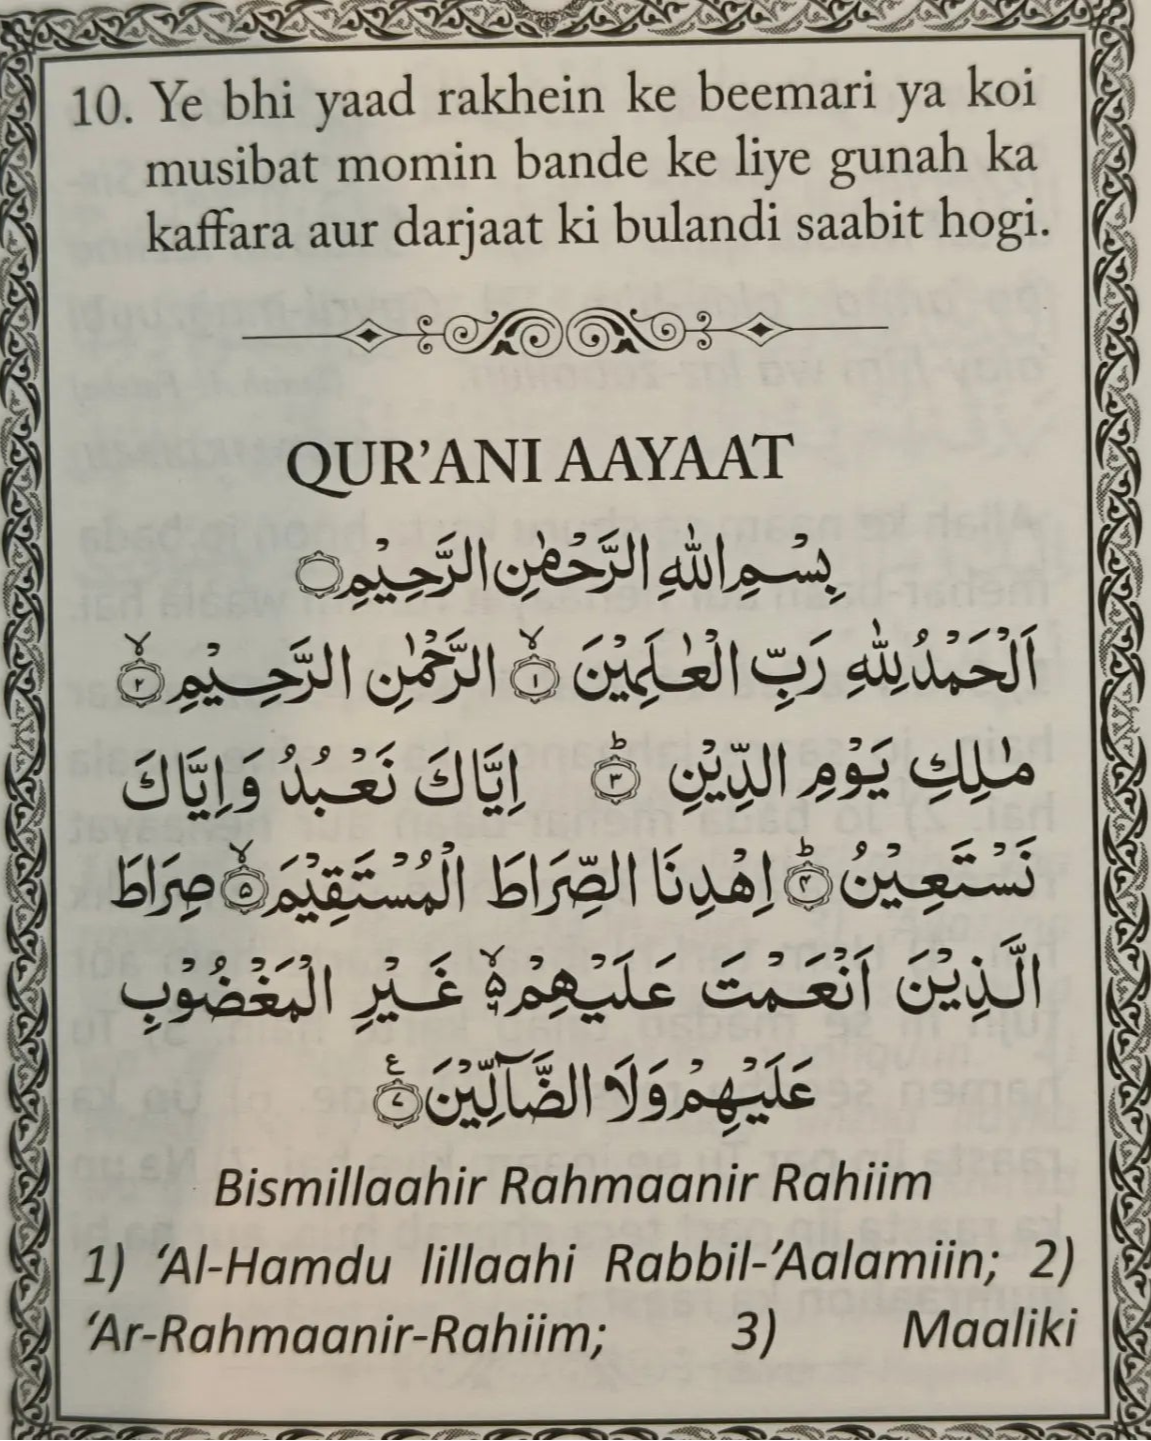 10. Ye bhi yaad rakhein ke beemari ya koi
musibat momin bande ke liye gunah ka
kaffara aur darjaat ki bulandi saabit hogi.
QUR’ANI AAYAAT
بِسْمِ اللهِ الرَّحْمٰنِ الرَّحِيْمِ۝
اَلْحَمْدُ لِلّٰهِ رَبِّ الْعٰلَمِيْنَ ۙ﴿۱﴾ الرَّحْمٰنِ الرَّحِيْمِ ۙ﴿۲﴾
مٰلِكِ يَوْمِ الدِّيْنِ ؕ﴿۳﴾ اِيَّاكَ نَعْبُدُ وَاِيَّاكَ
نَسْتَعِيْنُ ؕ﴿۴﴾ اِهْدِنَا الصِّرَاطَ الْمُسْتَقِيْمَ ۙ﴿۵﴾ صِرَاطَ
الَّذِيْنَ اَنْعَمْتَ عَلَيْهِمْ ۙ۵ غَيْرِ الْمَغْضُوْبِ
عَلَيْهِمْ وَلَا الضَّآلِّيْنَ ﴿۷﴾ ع
Bismillaahir Rahmaanir Rahiim
1) ‘Al-Hamdu lillaahi Rabbil-’Aalamiin; 2)
‘Ar-Rahmaanir-Rahiim; 3) Maaliki